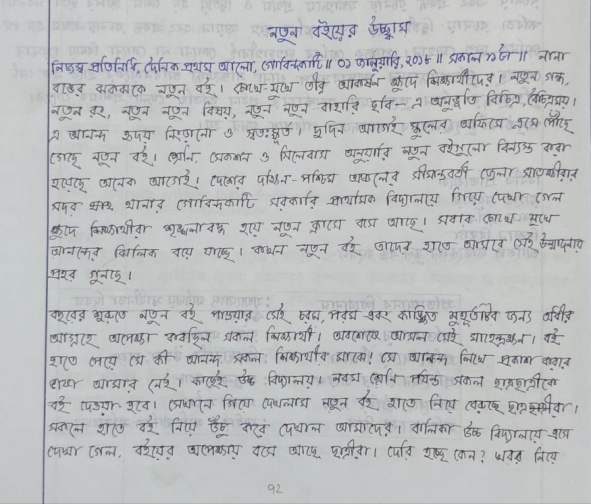 নতুন বইয়ের উচ্ছ্বাস
নিজস্ব প্রতিনিধি, দৈনিক প্রথম আলো, গোবিন্দকাটি॥ ০১ জানুয়ারি, ২০১৮ ॥ সকাল ৯টা ॥ নানা
রঙের ঝকঝকে নতুন বই। চোখে-মুখে তীব্র আকর্ষন ক্ষুদে শিক্ষার্থীদের। নতুন গন্ধ,
নতুন রং, নতুন নতুন বিষয়, নতুন নতুন বাহারি ছবি- এ অনুভূতি বিচিত্র, বৈচিত্র্যময়।
এ আনন্দ হৃদয় নিংড়ানো ও স্বতঃস্ফূর্ত। দুদিন আগেই স্কুলের অফিসে এসে পৌঁছে
গেছে নতুন বই। শ্রেনি সেকশন ও সিলেবাস অনুযায়ি নতুন বইগুলো বিন্যস্ত করা
হয়েছে অনেক আগেই। দেশের দক্ষিন-পশ্চিম অঞ্চলের সীমান্তবর্তী জেলা সাতক্ষীরার
সদর থানার গোবিন্দকাটি সরকারি প্রাথমিক বিদ্যালয়ে গিয়ে দেখা গেল
ক্ষুদে শিক্ষার্থীরা শৃঙ্খলাবদ্ধ হয়ে নতুন ক্লাসে বসে আছে। সবার চোখে মুখে
আনন্দের ঝিলিক বয়ে যাচ্ছে। কখন নতুন বই তাদের হাতে আসবে সেই উন্মাদনার
প্রহর গুনছে।
বছরের শুরুতে নতুন বই পাওয়ার সেই চরম, পরম এবং কাঙ্ক্ষিত মুহূর্তটির জন্য অধীর
আগ্রহে অপেক্ষা করছিল সকল শিক্ষার্থী। অবশেষে আসল সেই মাহেন্দ্রক্ষন। বই
হাতে পেয়ে সে কী আনন্দ সকল শিক্ষার্থীর মাঝে! সে আনন্দ লিখে প্রকাশ করার
ভাষা আমার নেই। কাছেই উচ্চ বিদ্যালয়। নবম শ্রেনি পর্যন্ত সকল ছাত্রছাত্রীকে
বই দেওয়া হবে। সেখানে গিয়ে দেখলাম নতুন বই হাতে নিয়ে বেরুচ্ছে ছাত্রছাত্রীরা।
সকলে হাতে বই নিয়ে উঁচু করে দেখাল আমাদের। বালিকা উচ্চ বিদ্যালয়ে এসে
দেখা গেল, বইয়ের অপেক্ষায় বসে আছে ছাত্রীরা। দেরি হচ্ছে কেন? খবর নিয়ে